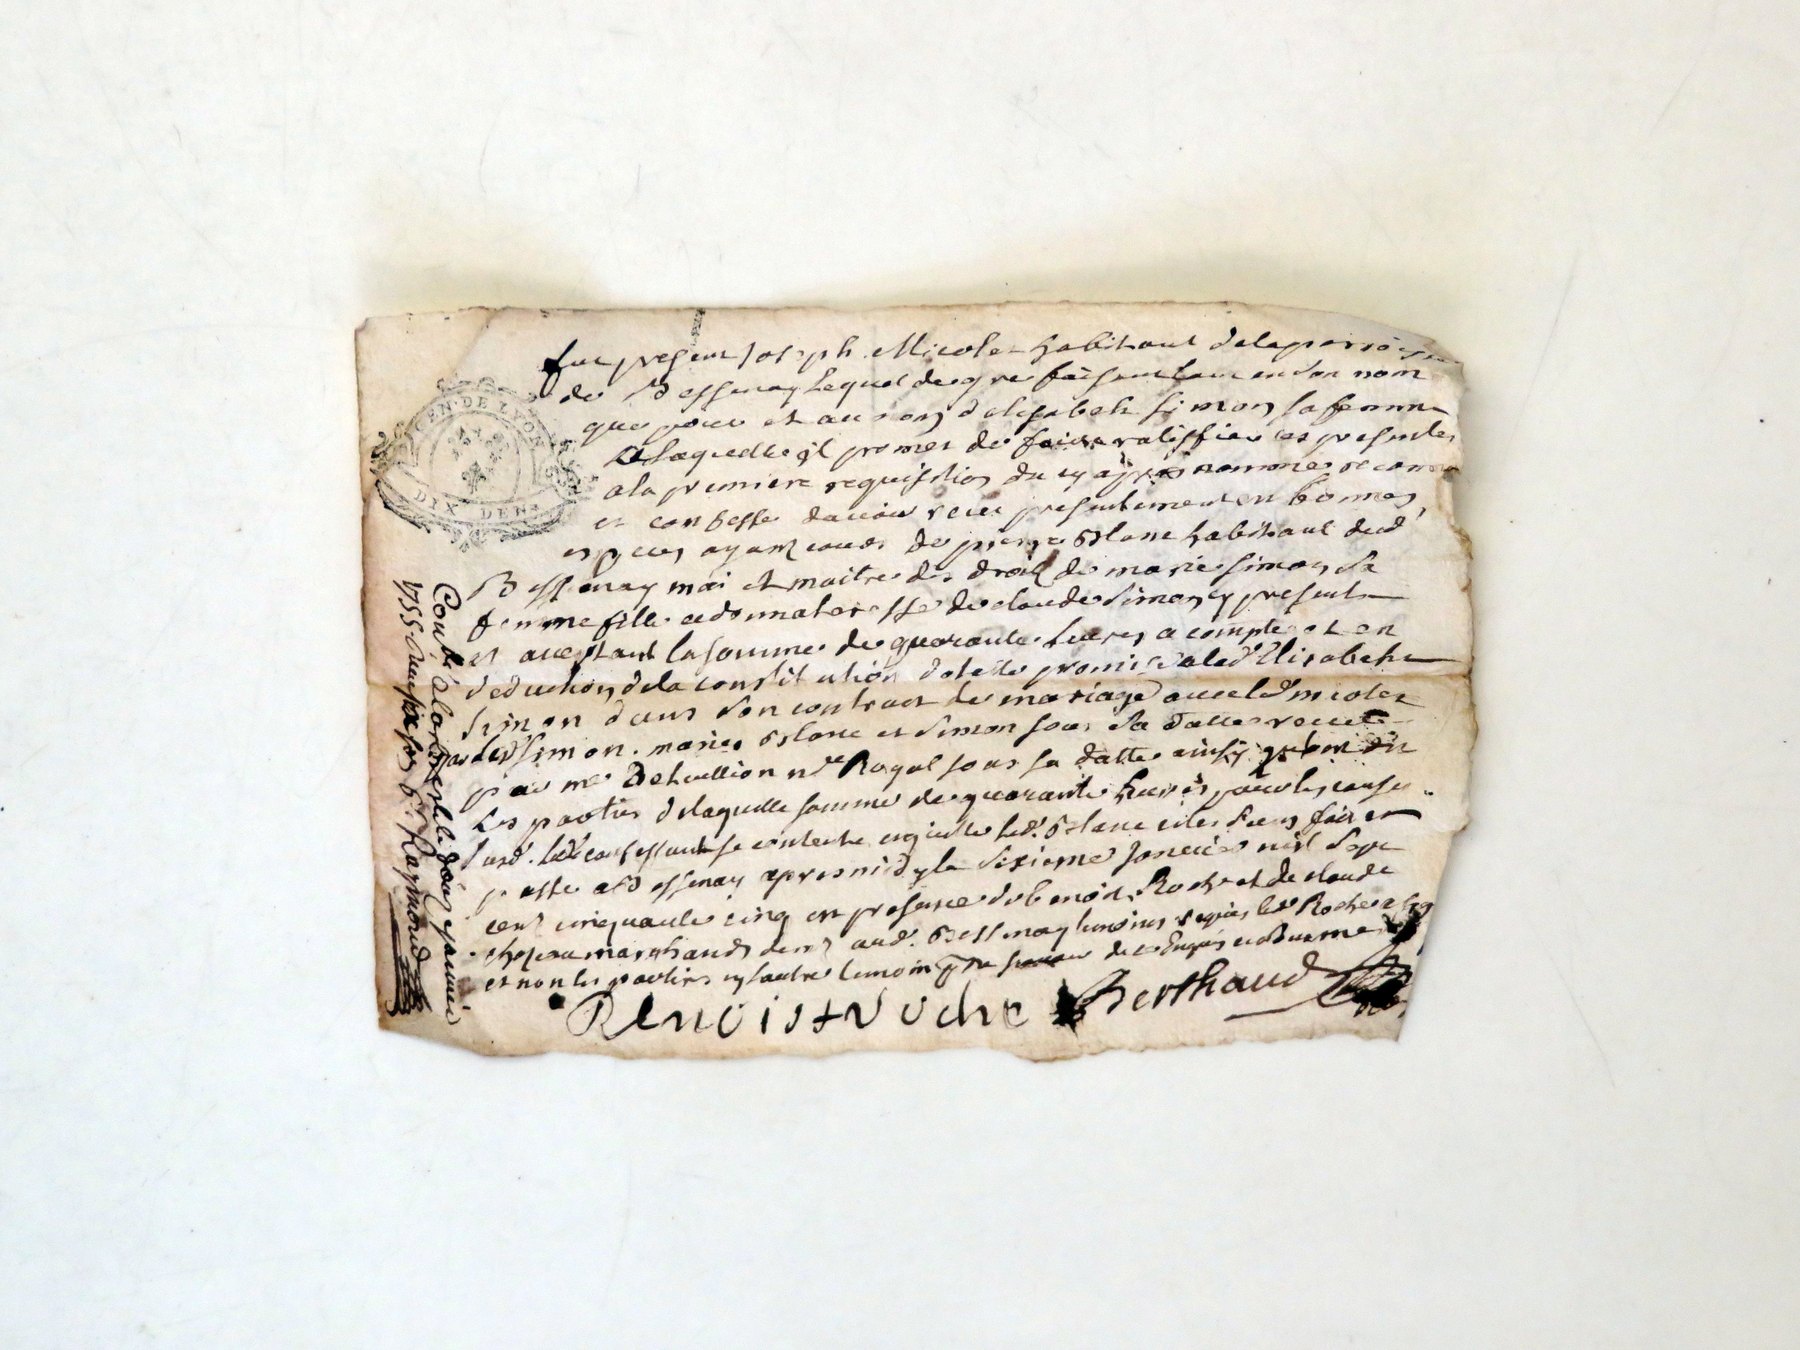 GEN. DE LYON
DIX DEN.
fut present Joseph Micolet habitant dela parroisse
de Bessenay Lequel de gre faisant tant en son nom
que pour et au nom d'elisabeth simon sa femme
a laquelle il promet de faire ratiffier ces presentes
a la premiere requisition du cy apres nommé
et confesse dauoir receu presentement en bonnes
especes ayant cours de pierre blanc habitant dud.
Bessenay mari et maitre des droits de marie simon sa
femme fille et donnateresse de claude simon cy present
et acceptant la somme de quarante liures a compte et en
deduction dela constitution dotalle promise alad. Elisabeth
simon dans son contract de mariage auec led. micolet
par lesd. simon, marie blanc et simon sous sa datte receu
par me notre Royal sous sa datte ainsy quont dit
Les parties de laquelle somme de quarante liures pour les causes
led. confessant se contente en quitte led. blanc fait et
passé a Bessenay apres midy le sixieme Januier mil sept
cent cinquante cinq en presence de benoist Roche et de claude
marchands dem. aud. Bessenay temoins requis led. Roche a signé
et non les parties ny lautre temoin de ce Enquis
Benoist roche Berthaud
Con.lé à larbresle Janvier
1755 Reçu six sols Raymond